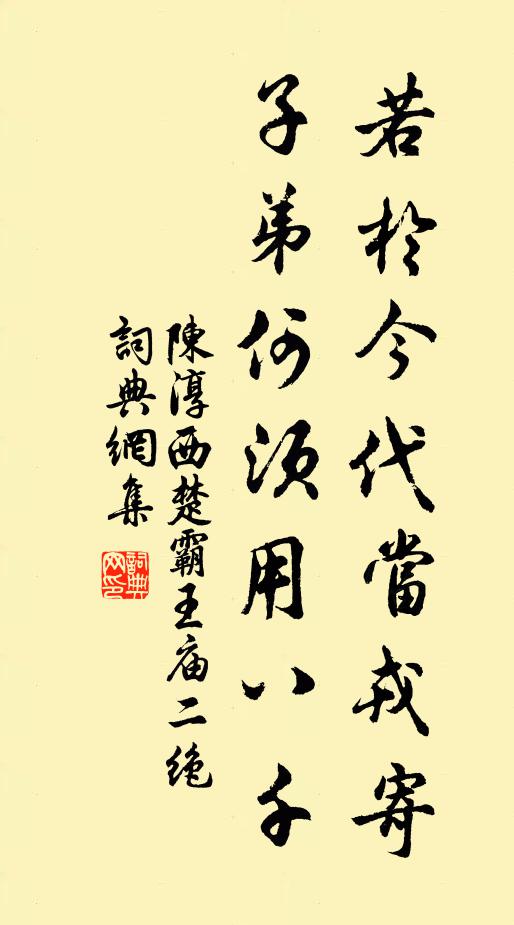 若於今代當戎寄
子弟何須用八千
陳淳西楚霸王庙二絶
詞典網集
詞典网印